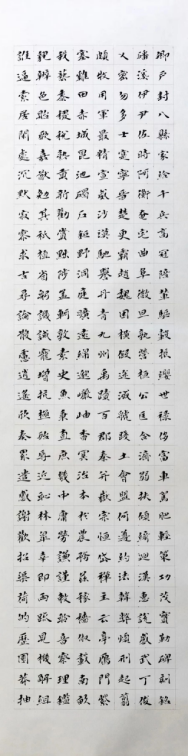 卿户封八縣家給千兵高冠陪輦驅轂振纓世祿侈富車駕肥輕策功茂實勒碑刻銘
磻溪伊尹佐時阿衡奄宅曲阜微旦孰營桓公匡合濟弱扶傾綺迴漢惠說感武丁俊
乂密勿多士寔寧晉楚更霸趙魏困橫假途滅虢踐土會盟何遵約法韓弊煩刑起翦
頗牧用軍最精宣威沙漠馳譽丹青九州禹跡百郡秦并嶽宗恆岱禪主云亭雁門紫
塞雞田赤城昆池碣石鉅野洞庭曠遠綿邈巖岫杳冥治本於農務茲稼穡俶載南畝
我藝黍稷稅熟貢新勸賞黜陟孟軻敦素史魚秉直庶幾中庸勞謙謹敕聆音察理鑑
貌辨色貽厥嘉猷勉其祗植省躬譏誡寵增抗極殆辱近恥林皋幸即兩疏見機解組
誰逼索居閒處沉默寂寥求古尋論散慮逍遙欣奏累遣慼謝歡招渠荷的歷園莽抽